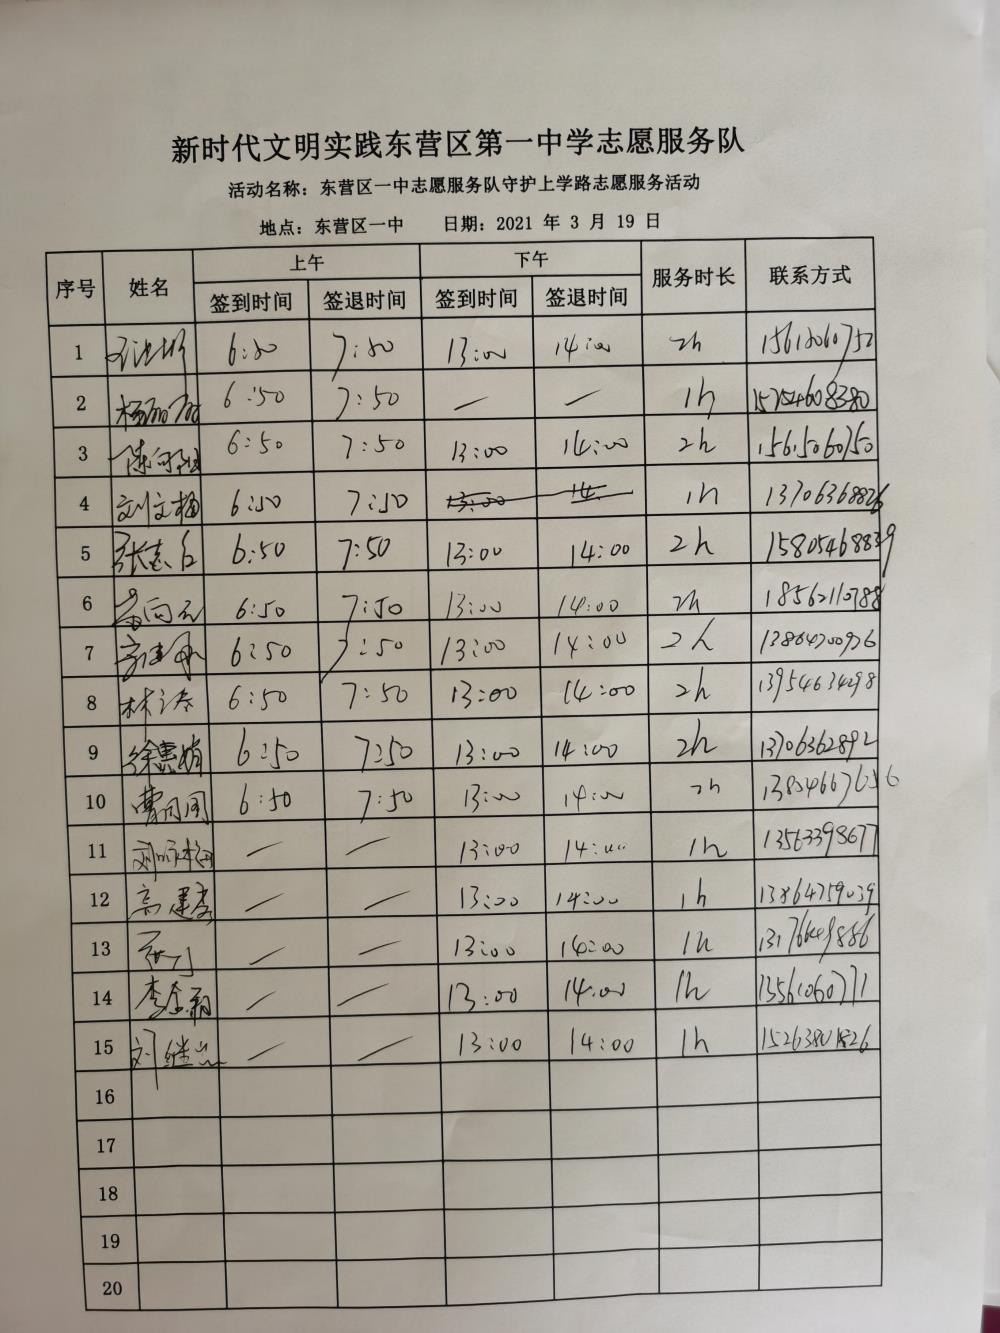 新时代文明实践东营区第一中学志愿服务队
活动名称：东营区一中志愿服务队守护上学路志愿服务活动
地点：东营区一中 日期：2021 年 3 月 19 日
序号 姓名 上午 下午 服务时长 联系方式
签到时间 签退时间 签到时间 签退时间
1 6:50 7:50 13:00 14:00 2h
2 6:50 7:50 — — 1h 15754608380
3 6:50 7:50 13:00 14:00 2h 15615060750
4 刘文梅 6:50 7:50 13:00 14: 1h 13706368826
5 6:50 7:50 13:00 14:00 2h 15805468839
6 6:50 7:50 13:00 14:00 2h 18562110788
7 6:50 7:50 13:00 14:00 2h
8 6:50 7:50 13:00 14:00 2h 13954634298
9 徐惠娟 6:50 7:50 13:00 14:00 2h 13706362892
10 6:50 7:50 13:00 14:00 2h
11 — — 13:00 14:00 1h 13563398677
12 — — 13:00 14:00 1h 13864759039
13 — — 13:00 14:00 1h
14 — — 13:00 14:00 1h 13561060771
15 — — 13:00 14:00 1h 15263801826
16
17
18
19
20